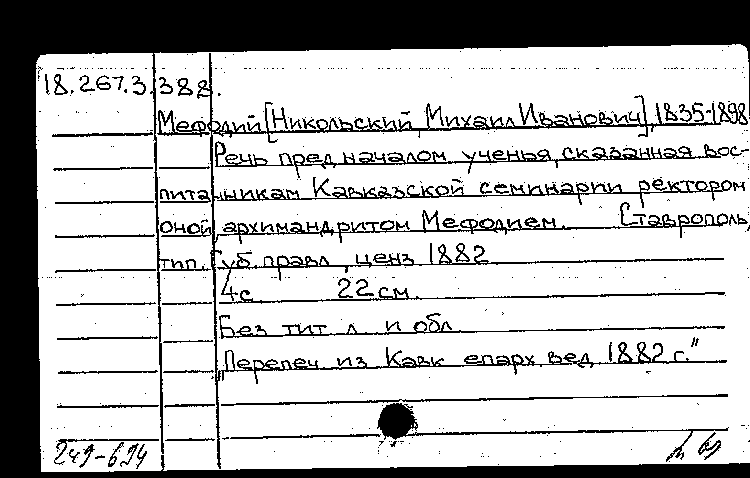 18.267.3.388.
Мефодий [Никольский, Михаил Иванович], 1835-1898
Речь пред началом ученья, сказанная вос-
питанникам Кавказской семинарии ректором
оной, архимандритом Мефодием. Ставрополь,
тип. Губ. правл., ценз 1882
4с 22 см.
Без тит л. и обл
„Перепеч из Кавк епарх. вед. 1882 г."
249-694